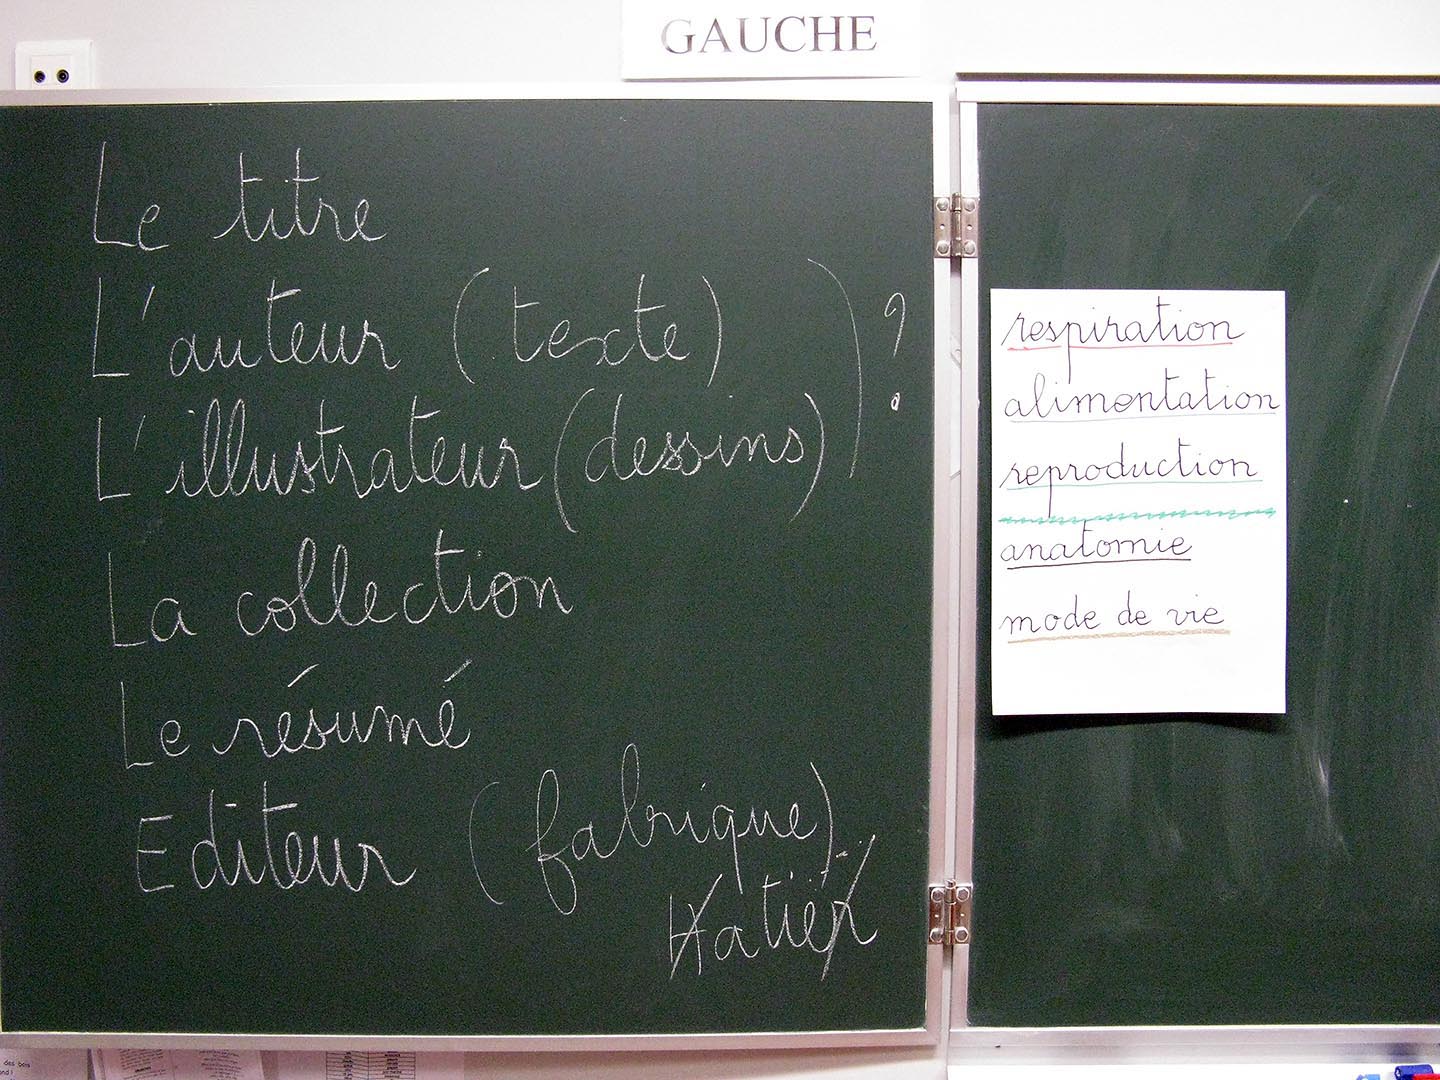 GAUCHE
Le titre
L'auteur (texte) ) ?
L'illustrateur (dessins)
La collection
Le résumé
Editeur (fabrique)
Hatier
respiration
alimentation
reproduction
anatomie
mode de vie
des bois